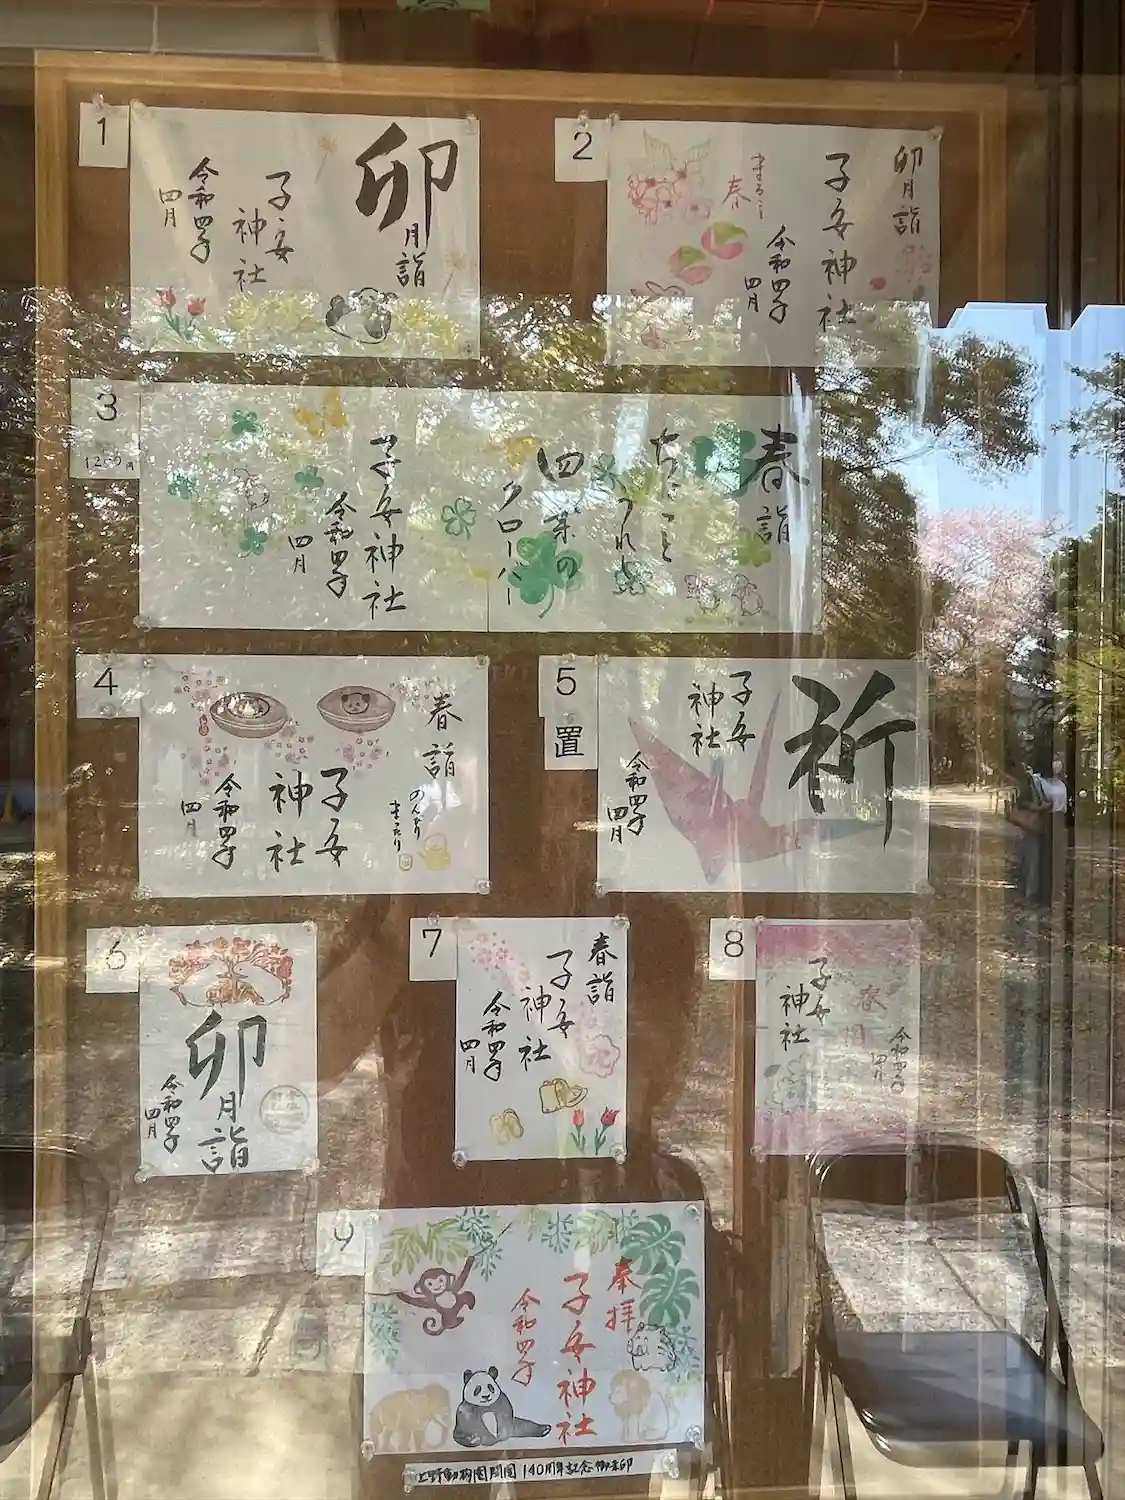 1
卯
月詣
子安
神社
令和四年
四月
2
卯月詣
子安神社
令和四年
四月
春
3
春詣
四つ葉の
クローバー
子安神社
令和四年
四月
4
春詣
のんびり
まったり
子安
神社
令和四年
四月
5
置
祈
子安
神社
令和四年
四月
6
卯
月
詣
令和四年
四月
7
春詣
子安
神社
令和四年
四月
8
春
子安
神社
令和四年
四月
9
奉拝
子安神社
令和四年
上野動物園開園140周年記念御朱印